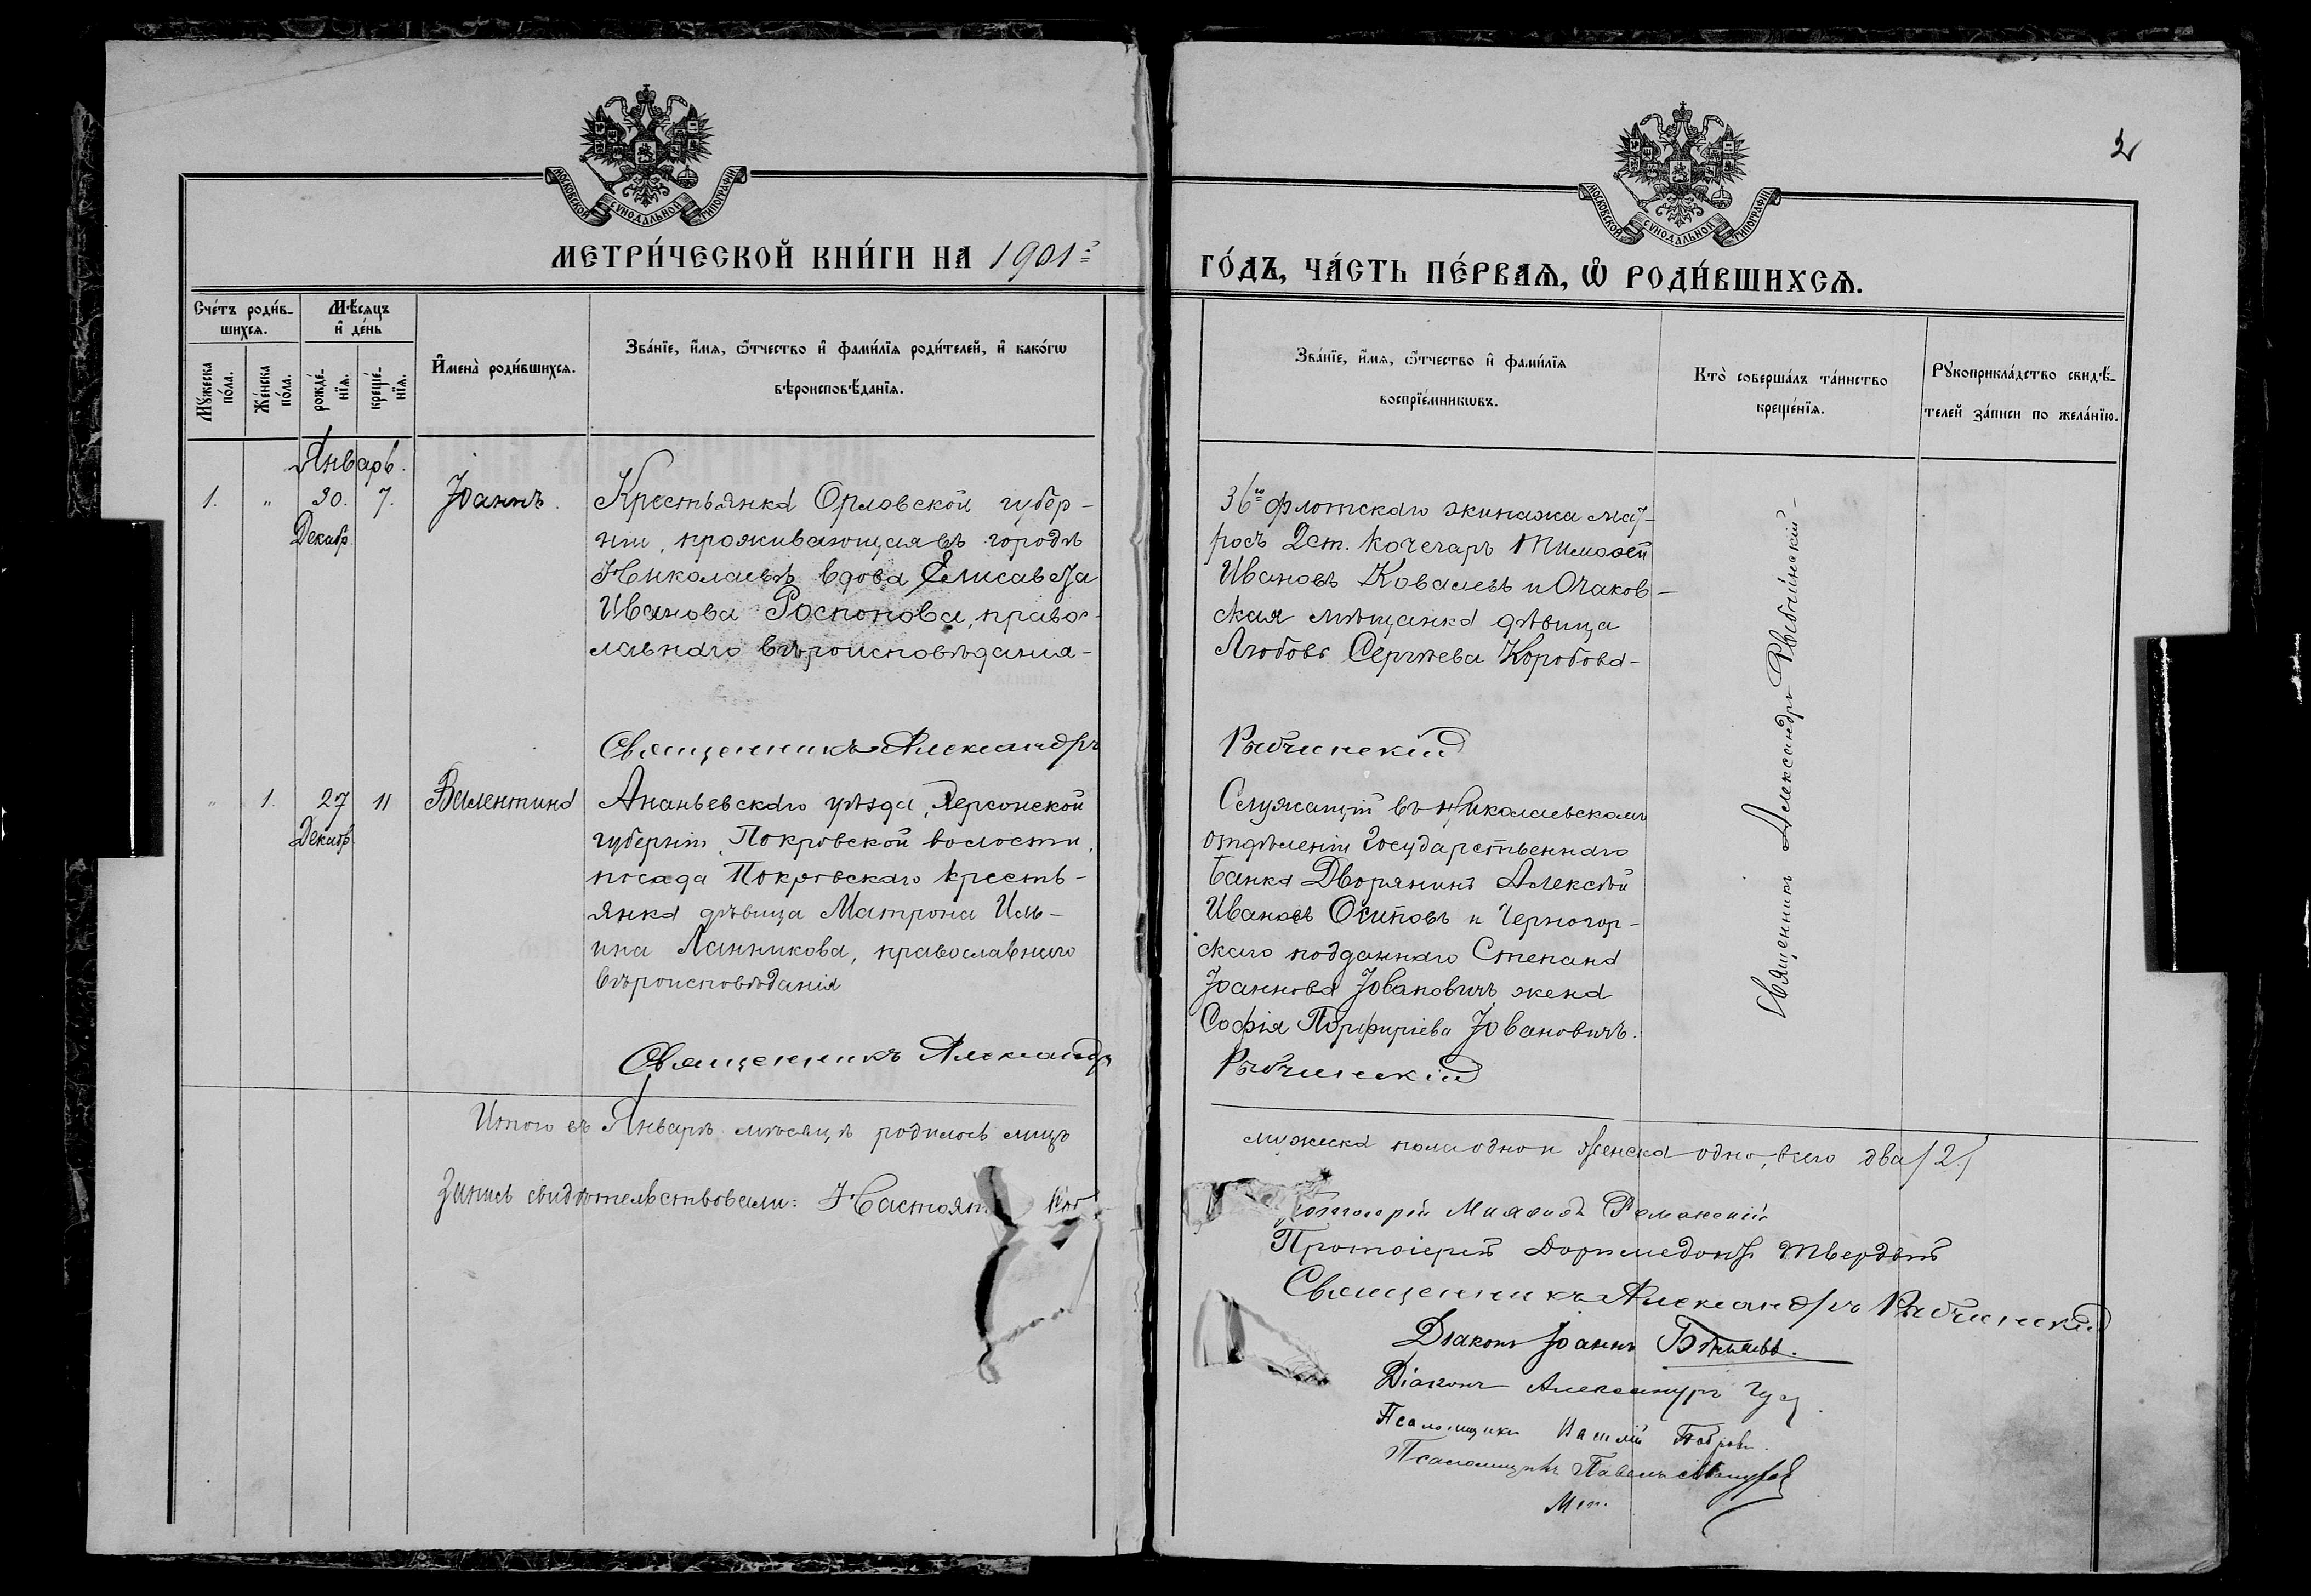 2
МОСКОВСКОЙ СУНОДАЛЬНОЙ ТИПОГРАФІИ
МОСКОВСКОЙ СУНОДАЛЬНОЙ ТИПОГРАФІИ
МЕТРИ́ЧЕСКОЙ КНИ́ГИ НА 1901й
ГО́ДЪ, ЧА́СТЬ ПЕ́РВАѦ, Ѡ҆ РОДИ́ВШИХСѦ.
Сче́тъ роди́в-
шихсѧ.
Мѣ́сяцъ
и҆ де́нь
Мꙋ́жеска
по́ла.
Же́нска
по́ла.
рожде́-
нїѧ.
креще́-
нїѧ.
И҆мена̀ роди́вшихсѧ.
Зва́нїе, и҆́мѧ, ѻ҆́тчество и҆ фами́лїѧ роди́телей, и҆ како́гѡ
вѣроисповѣ́данїѧ.
Зва́нїе, и҆́мѧ, ѻ҆́тчество и҆ фами́лїѧ
воспрїе́мникѡвъ.
Кто̀ соверша́лъ та́инство
креще́нїѧ.
Рꙋкоприкла́дство свидѣ́-
телей за́писи по жела́нїю.
Январь.
1. " 30. 7. Іоаннъ.
Декабр.
Крестьянка Орловской губер-
ніи, проживающая въ городѣ
Николаевѣ вдова Елисавета
Иванова Роспопова, правос-
лавнаго вѣроисповѣданія-
Священникъ Александръ
36го флотскаго экипажа мат-
росъ 2 ст. кочегаръ Тимоѳей
Ивановъ Ковалевъ и Очаков-
ская мѣщанка дѣвица
Любовь Сергѣева Коробова-
Рыбчинскій
Священникъ Александръ Рыбчинскій-
" 1. 27 11 Валентина
Декабр.
Ананьевскаго уѣзда, Херсонской
губерніи, Покровской волости,
посада Покровскаго кресть-
янка дѣвица Матрона Иль-
ина Ланникова, православнаго
вѣроисповѣданія
Священникъ Александръ
Служащій въ Николаевскомъ
отдѣленіи Государственнаго
Банка Дворянинъ Алексѣй
Ивановъ Осиповъ и Черногор-
скаго подданнаго Степана
Іоаннова Іовановичъ жена
Софія Порфиріева Іовановичъ.
Рыбчинскій
Итого въ Январѣ мѣсяцѣ родилось лицъ
мужеска пола одно и женска одно, всего два /2/
Запись свидѣтельствовали: Настоят
Протоіерей
Протоіерей Доримедонтъ Твердый
Священникъ Александръ Рыбчинскій
Діаконъ Іоаннъ
Діаконъ Александръ
Псаломщикъ Василій
Псаломщикъ Павелъ